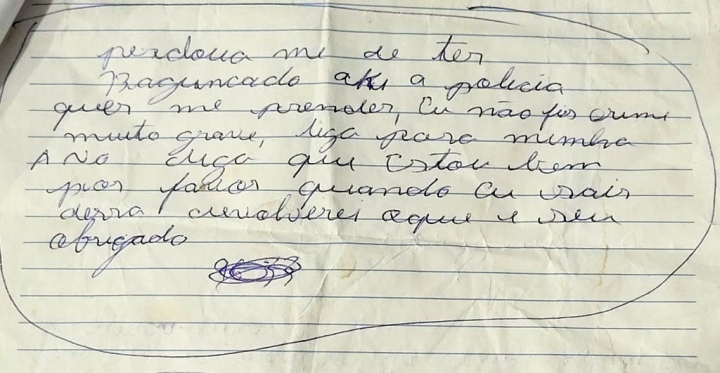 perdoua me de ter
Baguncado aki a policia
quer me prender, Eu não fis crime
muito grave, liga para mimha
A Vo diga que estou bem
por favor quando Eu sair
dessa devolverei oque e seu
obrigado